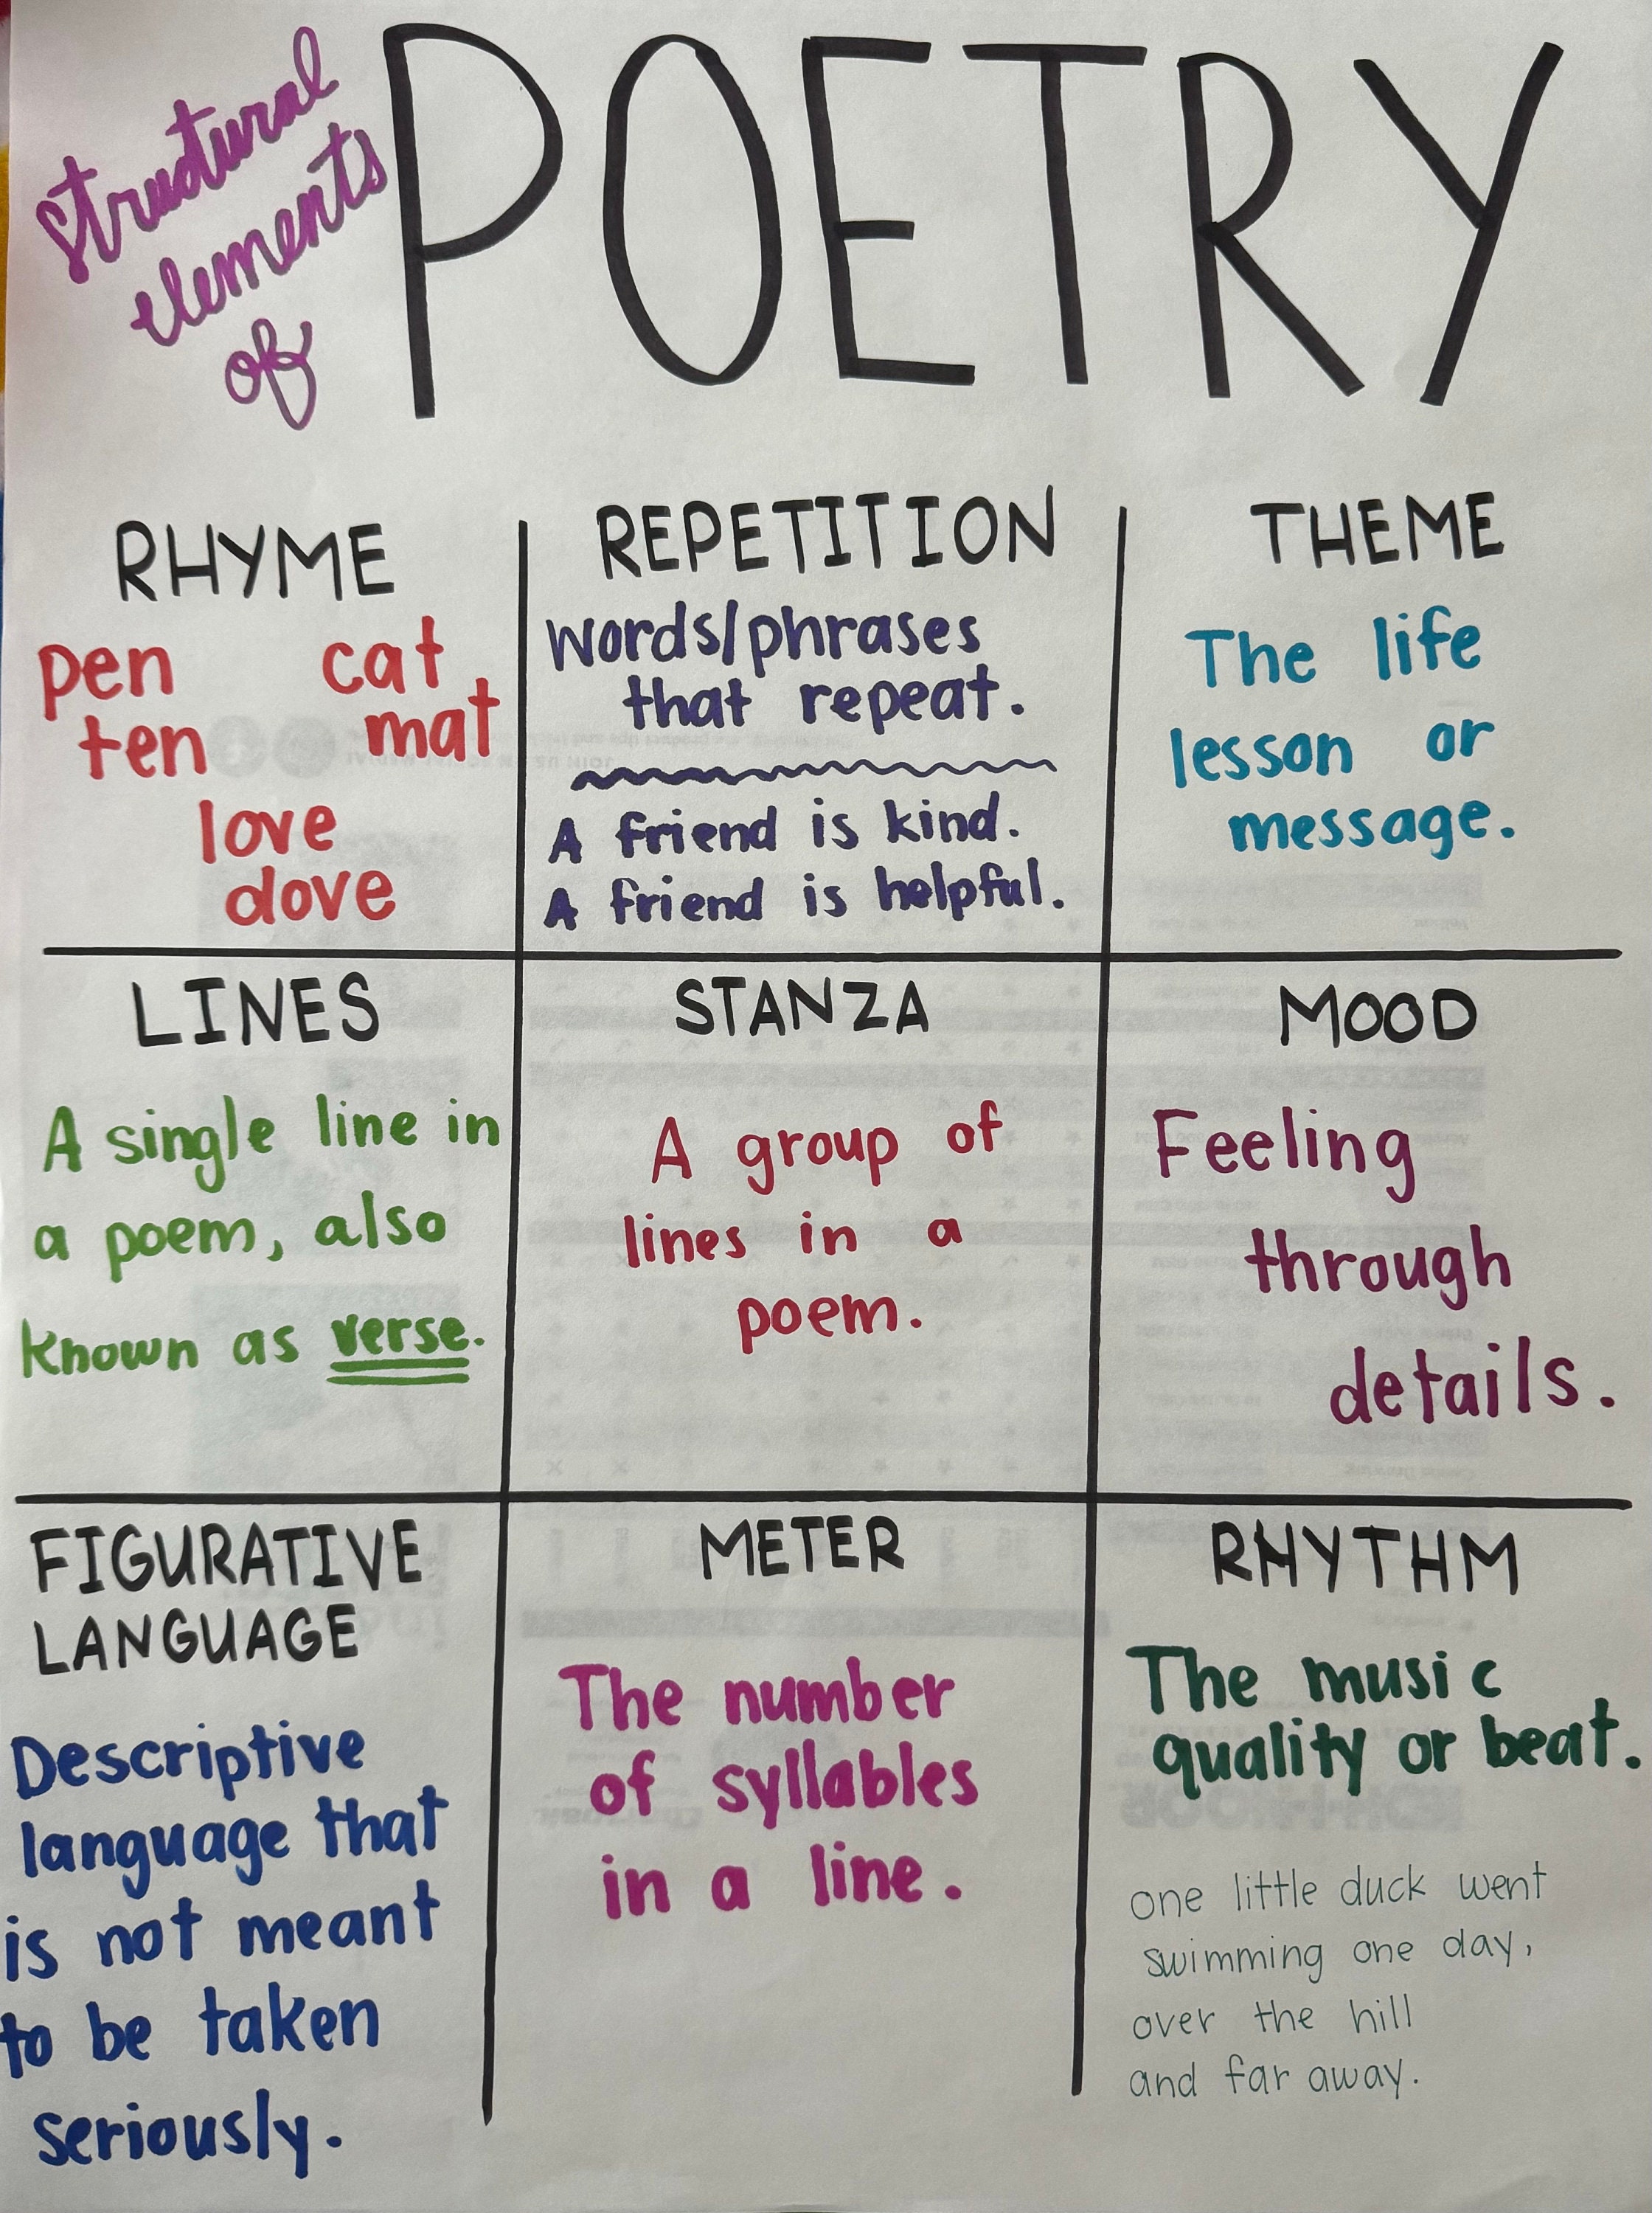 Structural
elements
of
POETRY
RHYME
pen cat
ten mat
love
dove
REPETITION
words/phrases
that repeat.
A friend is kind.
A friend is helpful.
THEME
The life
lesson or
message.
LINES
A single line in
a poem, also
known as verse.
STANZA
A group of
lines in a
poem.
MOOD
Feeling
through
details.
FIGURATIVE
LANGUAGE
Descriptive
language that
is not meant
to be taken
seriously.
METER
The number
of syllables
in a line.
RHYTHM
The music
quality or beat.
one little duck went
swimming one day,
over the hill
and far away.